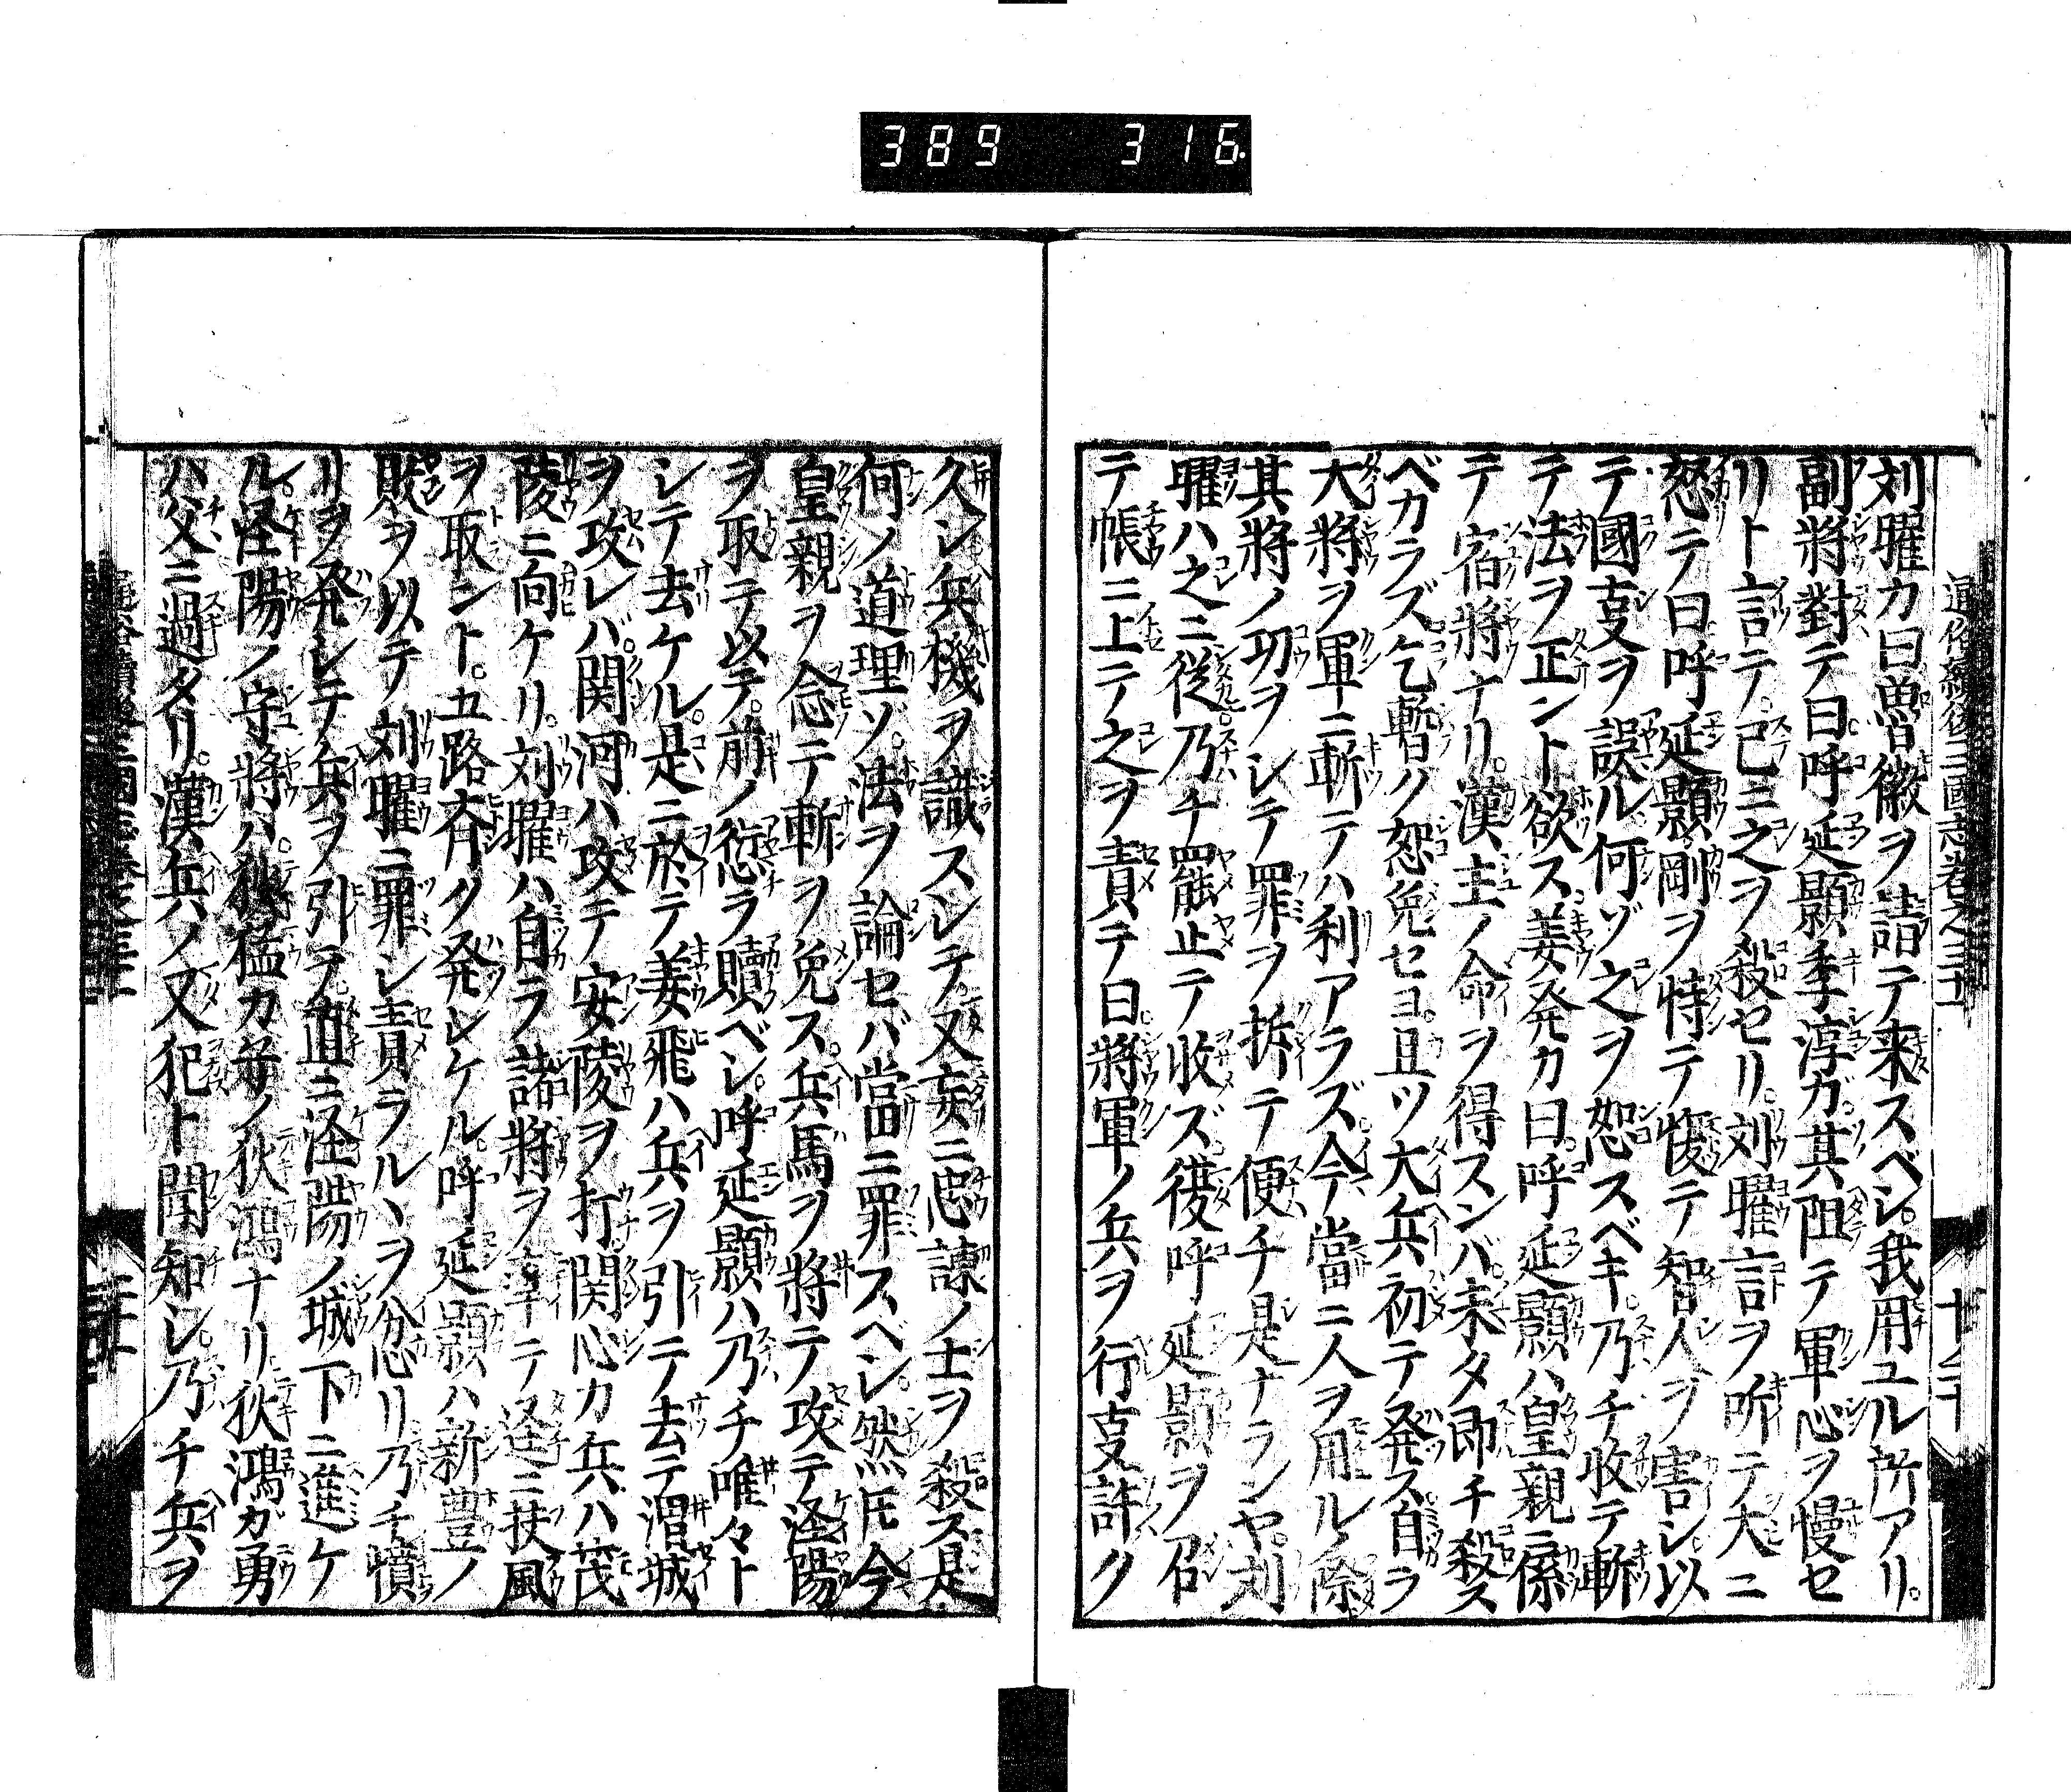 389 316
通俗續後三國志卷之三十一
刘曜カ曰曽徽ヲ詰テ来スベシ。我用ユル所アリ。
副將對テ曰呼延顥季淳ガ其阻テ軍心ヲ慢セ
リト言テ。已ニ之ヲ殺セリ。刘曜言ヲ听テ大ニ
怒テ曰呼延顥剛ヲ恃テ愎テ智人ヲ害シ以
テ國㕝ヲ誤ル何ゾ之ヲ恕スベキ。乃チ收テ斬
テ法ヲ正ント欲ス姜発カ曰。呼延顥ハ皇親ニ係
テ宿將ナリ。漢主ノ命ヲ得スンバ。未タ即チ殺ス
ベカラズ乞暫ク恕免セヨ。且ツ大兵初テ発ス自ラ
大將ヲ軍ニ斬テハ利アラズ今當ニ人ヲ用ル除
其將ノ功ヲシテ罪ヲ折テ便チ是ナランヤ。刘
曜ハ之ニ従。乃チ罷止テ收ズ復呼延顥ヲ召
テ帳ニ上テ之ヲ責テ曰。將軍ノ兵ヲ行㕝許ク
久シ兵機ヲ識スシテ。又妄ニ忠諫ノ士ヲ殺ス是
何ノ道理ソ。法ヲ論セバ當ニ罪スベシ。然𪜈今
皇親ヲ念テ斬ヲ免ス。兵馬ヲ將テ攻テ涇陽
ヲ取テ以テ。前ノ愆ラ贖ベシ。呼延顥ハ乃チ唯々ト
シテ去ケル。是ニ於テ姜飛ハ兵ヲ引テ去テ渭城
ヲ攻レバ。関河ハ攻テ安陵ヲ打。関心カ兵ハ茂
陵ニ向ケリ。刘曜ハ自ラ諸將ヲ率テ逕ニ扶風
ヲ取ント。五路斉ク発レケル。呼延顥ハ新豊ノ
敗ヲ以テ刘曜ニ罪シ責ラルヽヲ忿リ乃チ憤
リヲ発レテ兵ヲ引テ。直ニ涇陽ノ城下ニ進ケ
ル。涇陽ノ守將ハ。狄猛カ㐧ノ狄鴻ナリ狄鴻ガ勇
ハ父ニ過タリ。漢兵ノ又犯ト聞知シ。乃チ兵ヲ